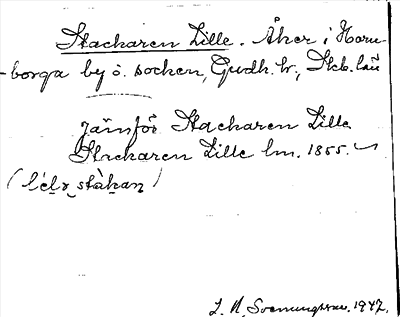 Stacharen Lille. Åker i Horn-
borga by o. socken, Gudh. hr, Skb. län
Jämför Stacharen Lille
Stacharen Lille lm. 1855.
J. N. Svenungsson. 1947.